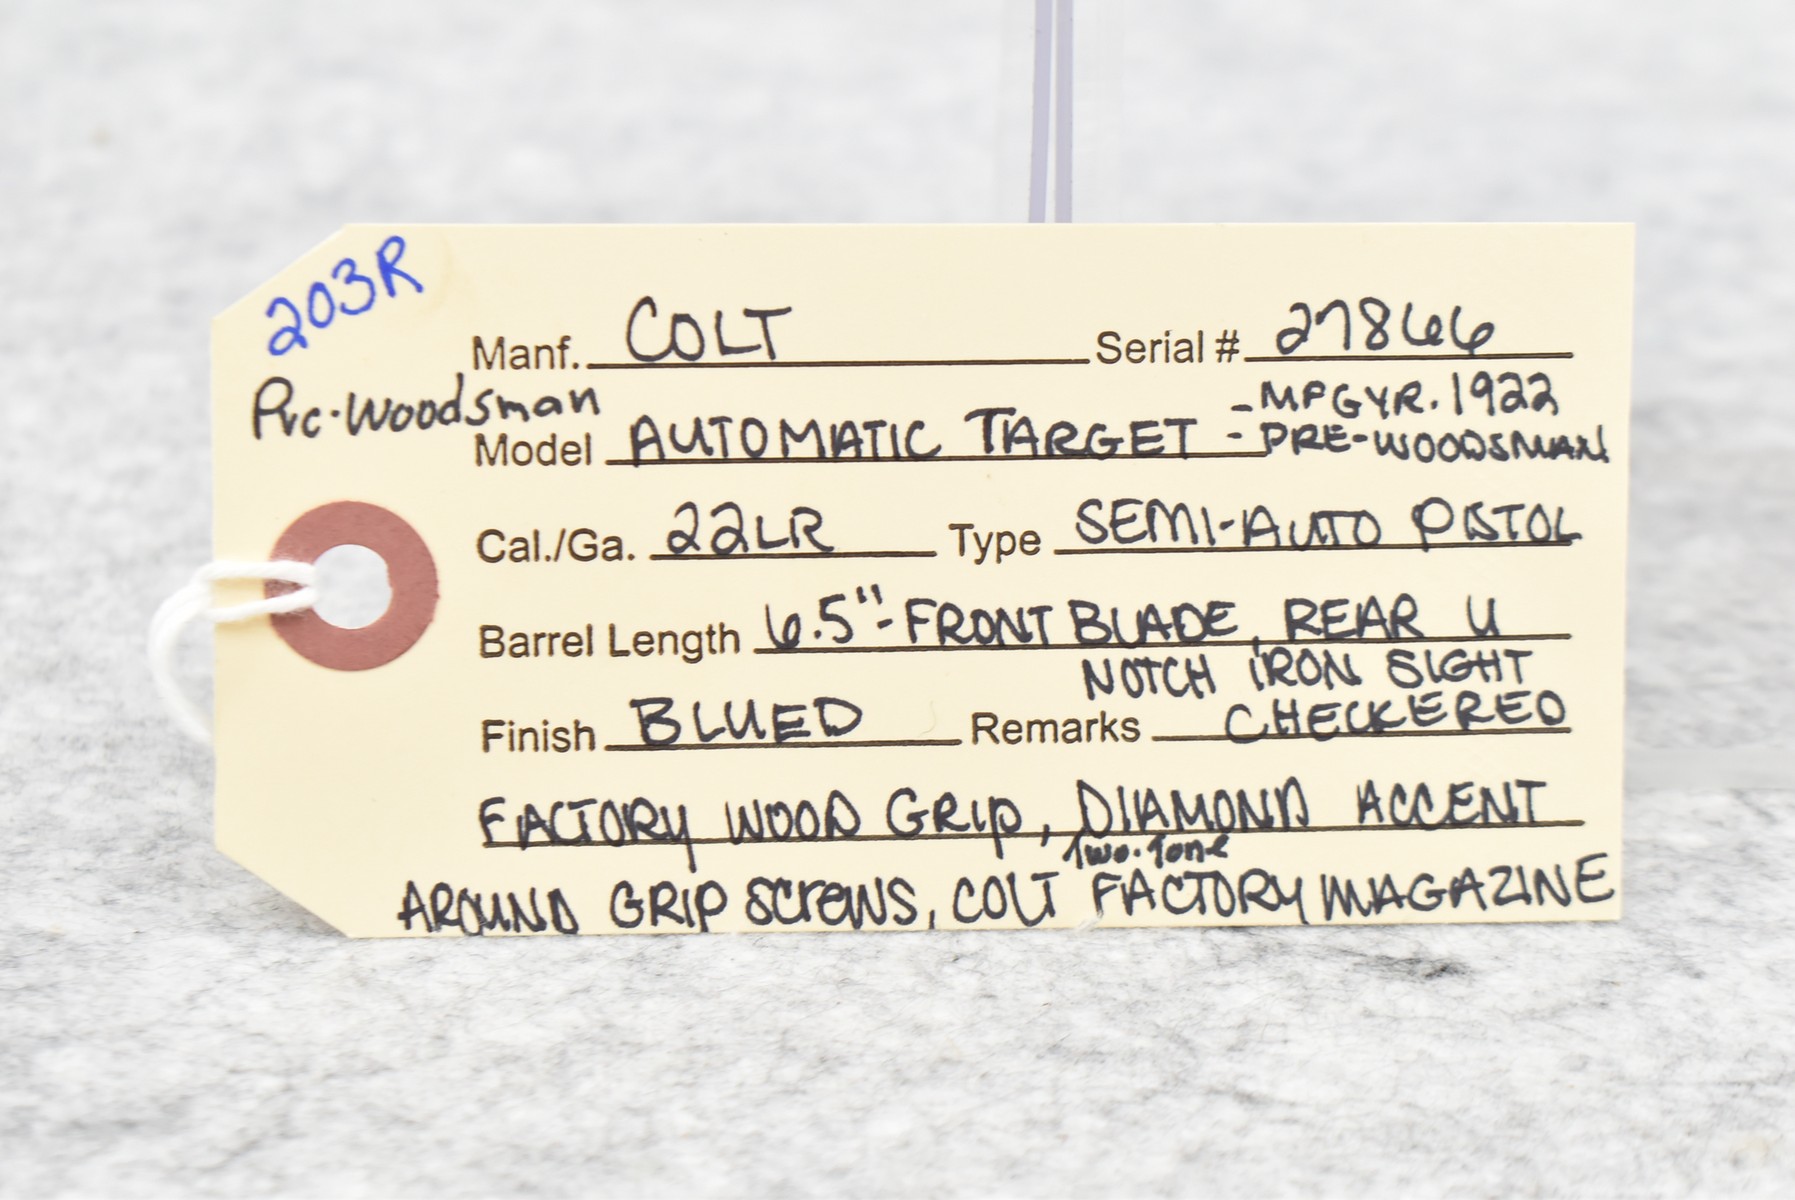 203R
Manf. COLT Serial # 27866
Pre-Woodsman
- MFG YR. 1922
Model AUTOMATIC TARGET - PRE-WOODSMAN
Cal./Ga. 22LR Type SEMI-AUTO PISTOL
Barrel Length 6.5"- FRONT BLADE, REAR U
NOTCH IRON SIGHT
Finish BLUED Remarks CHECKERED
FACTORY WOOD GRIP, DIAMOND ACCENT
Two-Tone
AROUND GRIP SCREWS, COLT FACTORY MAGAZINE